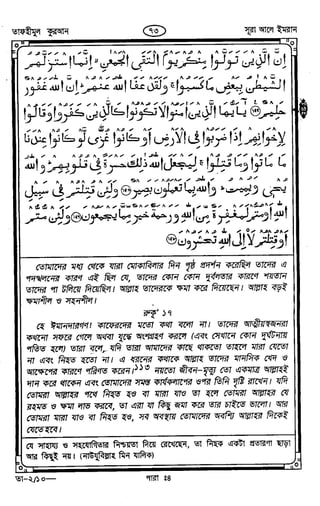 তাফহীমুল কুরআন
৭৩
সূরা আলে ইমরান
إِنَّ الَّذِينَ تَوَلَّوْا مِنْكُمْ يَوْمَ الْتَقَى الْجَمْعٰنِ ۙ إِنَّمَا اسْتَزَلَّهُمُ
الشَّيْطٰنُ بِبَعْضِ مَا كَسَبُوا ۚ وَلَقَدْ عَفَا اللّٰهُ عَنْهُمْ ؕ إِنَّ اللّٰهَ غَفُورٌ
حَلِيمٌ ﴿١٥٥﴾ يٰٓأَيُّهَا الَّذِينَ اٰمَنُوا لَا تَكُونُوا كَالَّذِينَ كَفَرُوا وَقَالُوا
لِإِخْوَانِهِمْ إِذَا ضَرَبُوا فِي الْأَرْضِ أَوْ كَانُوا غُزًّى لَوْ كَانُوا عِنْدَنَا
مَا مَاتُوا وَمَا قُتِلُوا ۚ لِيَجْعَلَ اللّٰهُ ذٰلِكَ حَسْرَةً فِي قُلُوبِهِمْ ؕ وَاللّٰهُ
يُحْيِي وَيُمِيتُ ؕ وَاللّٰهُ بِمَا تَعْمَلُونَ بَصِيرٌ ﴿١٥٦﴾ وَلَئِنْ قُتِلْتُمْ فِي سَبِيلِ
اللّٰهِ أَوْ مُتُّمْ لَمَغْفِرَةٌ مِنَ اللّٰهِ وَرَحْمَةٌ خَيْرٌ مِمَّا يَجْمَعُونَ ﴿١٥٧﴾ وَلَئِنْ مُتُّمْ
أَوْ قُتِلْتُمْ لَإِلَى اللّٰهِ تُحْشَرُونَ ﴿١٥٨﴾
তোমাদের মধ্য থেকে যারা মোকাবিলার দিন পৃষ্ঠ প্রদর্শন করেছিল তাদের এ
পদস্খলনের কারণ এই ছিল যে, তাদের কোন কোন দুর্বলতার কারণে শয়তান
তাদের পা টলিয়ে দিয়েছিল। আল্লাহ তাদেরকে ক্ষমা করে দিয়েছেন। আল্লাহ বড়ই
ক্ষমাশীল ও সহনশীল।
রুকূ' ১৭
হে ঈমানদারগণ! কাফেরদের মতো কথা বলো না। তাদের আত্মীয়স্বজনরা
কখনো সফরে গেলে অথবা যুদ্ধে অংশগ্রহণ করলে (এবং সেখানে কোন দুর্ঘটনায়
পতিত হলে) তারা বলে, যদি তারা আমাদের কাছে থাকতো তাহলে মারা যেতো
না এবং নিহত হতো না। এ ধরনের কথাকে আল্লাহ তাদের মানসিক খেদ ও
আক্ষেপের কারণে পরিণত করেন।১১৩ নয়তো জীবন–মৃত্যু তো একমাত্র আল্লাহই
দান করে থাকেন এবং তোমাদের সমস্ত কার্যকলাপের ওপর তিনি দৃষ্টি রাখেন। যদি
তোমরা আল্লাহর পথে নিহত হও বা মারা যাও তা হলে তোমরা আল্লাহর যে
রহমত ও ক্ষমা লাভ করবে, তা এরা যা কিছু জমা করে তার চাইতে ভালো। আর
তোমরা মারা যাও বা নিহত হও, সব অবস্থায় তোমাদের অবশ্যি আল্লাহর দিকেই
যেতে হবে।
যে সাহায্য ও সহযোগিতার নিশ্চয়তা দিয়ে রেখেছেন, তা নিছক একটা প্রতারণা ছাড়া
আর কিছুই নয়। (নাউযুবিল্লাহ মিন যালিক)
তা–২/১০—
পারা ঃ৪